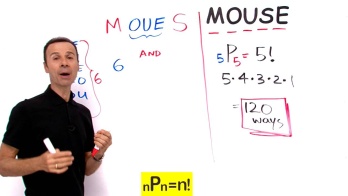 M OUE S
6
AND
6
OU
MOUSE
5P5 = 5!
5·4·3·2·1
= 120
ways
nPn=n!